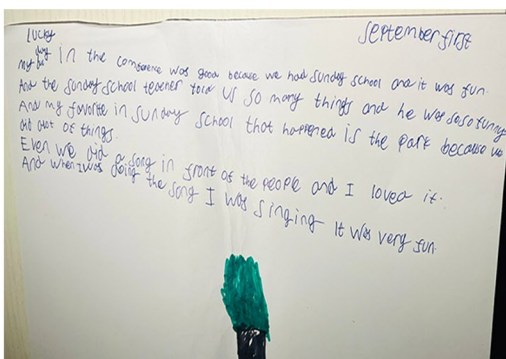 lucky
september first
my day in the conference was good because we had sunday school and it was fun.
And the sunday school teacher told us so many things and he was so so funny
And my favorite in sunday school that happened is the park because we
did alot of things.
Even we did a song in front of the people and I loved it.
And when I was doing the song I was singing it was very fun.